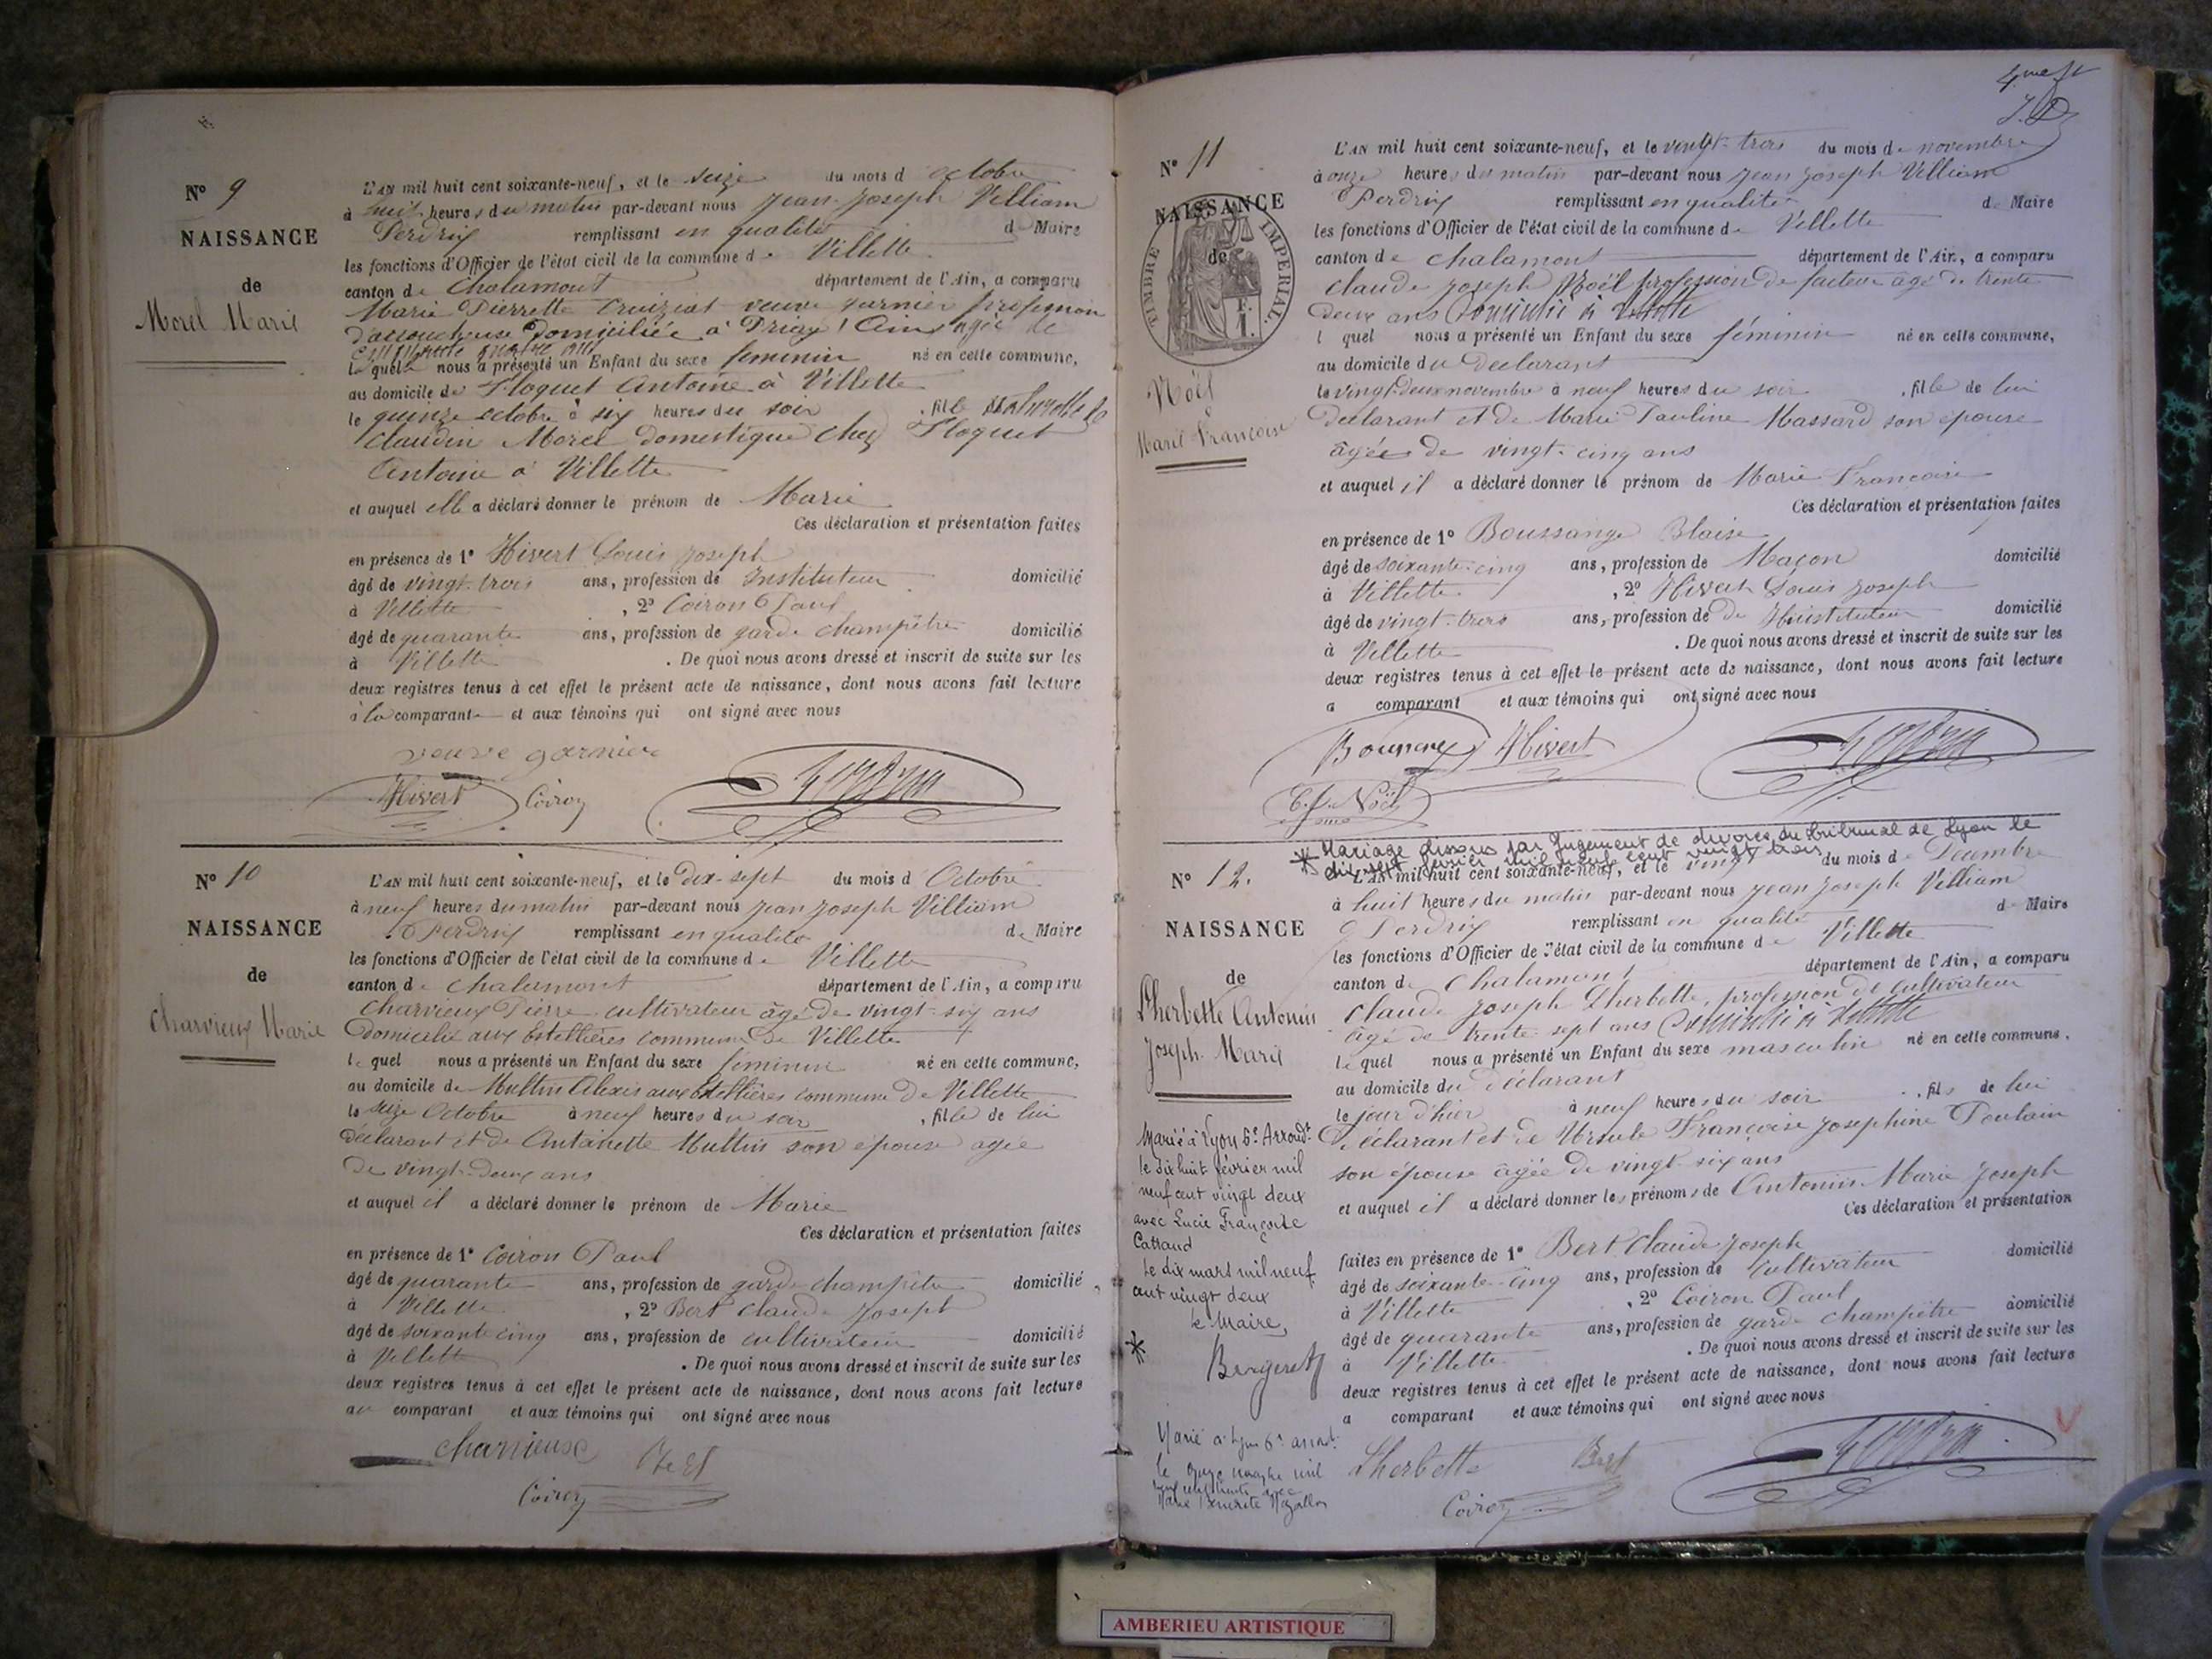 N° 9
NAISSANCE
de
Morel Marie
L'AN mil huit cent soixante-neuf, et le seize du mois d octobre
à huit heures du matin par-devant nous Jean Joseph Villiam
Perdrix remplissant en qualité de Maire
les fonctions d'Officier de l'état civil de la commune de Villette
canton de Chalamont département de l'Ain, a comparu
Marie Pierrette Cruiziat veuve garnier profession
d'accoucheuse Domiciliée à Priay (Ain) agée de
quatre ans
laquelle nous a présenté un Enfant du sexe féminin né en cette commune,
au domicile de Floquet Antoine à Villette
le quinze octobre à six heures du soir , fille naturelle de
Claudin Morel domestique chez Floquet
Antoine à Villette
et auquel elle a déclaré donner le prénom de Marie
Ces déclaration et présentation faites
en présence de 1° Hivert Louis Joseph
âgé de vingt-trois ans, profession de Instituteur domicilié
à Villette , 2° Coiron Paul
âgé de quarante ans, profession de garde champêtre domicilié
à Villette . De quoi nous avons dressé et inscrit de suite sur les
deux registres tenus à cet effet le présent acte de naissance, dont nous avons fait lecture
à la comparante et aux témoins qui ont signé avec nous
veuve garnier
Hivert Coiron
N° 10
NAISSANCE
de
Charvieux Marie
L'AN mil huit cent soixante-neuf, et le Dix-sept du mois d Octobre
à neuf heures du matin par-devant nous Jean Joseph Villiam
Perdrix remplissant en qualité de Maire
les fonctions d'Officier de l'état civil de la commune de Villette
canton de Chalamont département de l'Ain, a comparu
Charvieux Pierre cultivateur âgé de vingt-six ans
Domicilié aux Estellières commune de Villette
lequel nous a présenté un Enfant du sexe féminin né en cette commune,
au domicile de Multin Alexis aux Estellières commune de Villette
le seize Octobre à neuf heures du soir , fille de lui
déclarant et de Antoinette Multin son épouse agée
de vingt-deux ans
et auquel il a déclaré donner le prénom de Marie
Ces déclaration et présentation faites
en présence de 1° Coiron Paul
âgé de quarante ans, profession de garde champêtre domicilié
à Villette , 2° Bert Claude Joseph
âgé de soixante cinq ans, profession de cultivateur domicilié
à Villette . De quoi nous avons dressé et inscrit de suite sur les
deux registres tenus à cet effet le présent acte de naissance, dont nous avons fait lecture
au comparant et aux témoins qui ont signé avec nous
charvieuse Bert
Coiron
4me ft
J.D
N° 11
NAISSANCE
de
TIMBRE IMPERIAL.
Noël
Marie Françoise
L'AN mil huit cent soixante-neuf, et le vingt-trois du mois de novembre
à onze heures du matin par-devant nous Jean Joseph Villiam
Perdrix remplissant en qualité de Maire
les fonctions d'Officier de l'état civil de la commune de Villette
canton de Chalamont département de l'Ain, a comparu
Claude Joseph Noël profession de facteur âgé de trente
deux ans Domicilié à Villette
lequel nous a présenté un Enfant du sexe féminin né en cette commune,
au domicile du Déclarant
le vingt-deux novembre à neuf heures du soir , fille de lui
déclarant et de Marie Pauline Massard son épouse
âgée de vingt-cinq ans
et auquel il a déclaré donner le prénom de Marie Francoise
Ces déclaration et présentation faites
en présence de 1° Boussange Blaise
âgé de soixante-cinq ans, profession de Maçon domicilié
à Villette , 2° Hivert Louis Joseph
âgé de vingt-trois ans, profession de d'Instituteur domicilié
à Villette . De quoi nous avons dressé et inscrit de suite sur les
deux registres tenus à cet effet le présent acte de naissance, dont nous avons fait lecture
a comparant et aux témoins qui ont signé avec nous
Hivert
C. J. Noël
* Mariage dissous par Jugement de divorce du tribunal de Lyon le
dix sept février mil neuf cent vingt trois
N° 12.
NAISSANCE
de
Lherbette Antonin
Joseph Marie
L'AN mil huit cent soixante-neuf, et le vingt du mois de Decembre
à huit heures du matin par-devant nous Jean Joseph Villiam
Perdrix remplissant en qualité de Maire
les fonctions d'Officier de l'état civil de la commune de Villette
canton de Chalamont département de l'Ain, a comparu
Claude Joseph Lherbette, profession de Cultivateur
âgé de trente sept ans Domicilié à Villette
lequel nous a présenté un Enfant du sexe masculin né en cette commune.
au domicile du déclarant
le jour d'hier à neuf heures du soir , fils de lui
déclarant et de Ursule Françoise Josephine Poulain
son épouse âgée de vingt six ans
et auquel il a déclaré donner les prénoms de Antonin Marie Joseph
Ces déclaration et présentation
faites en présence de 1° Bert Claude Joseph
âgé de soixante-cinq ans, profession de Cultivateur domicilié
à Villette , 2° Coiron Paul
âgé de quarante ans, profession de garde champêtre domicilié
à Villette . De quoi nous avons dressé et inscrit de suite sur les
deux registres tenus à cet effet le présent acte de naissance, dont nous avons fait lecture
a comparant et aux témoins qui ont signé avec nous
Lherbette Bert
Coiron
Marié à Lyon 6e Arrondt
le dix huit février mil
neuf cent vingt deux
avec Lucie Françoise
Cattaud
Le dix mars mil neuf
cent vingt deux
Le Maire,
*
Bergeret
Marié à Lyon 6e arrondt
le onze mil
neuf cent avec
Marie
AMBERIEU ARTISTIQUE